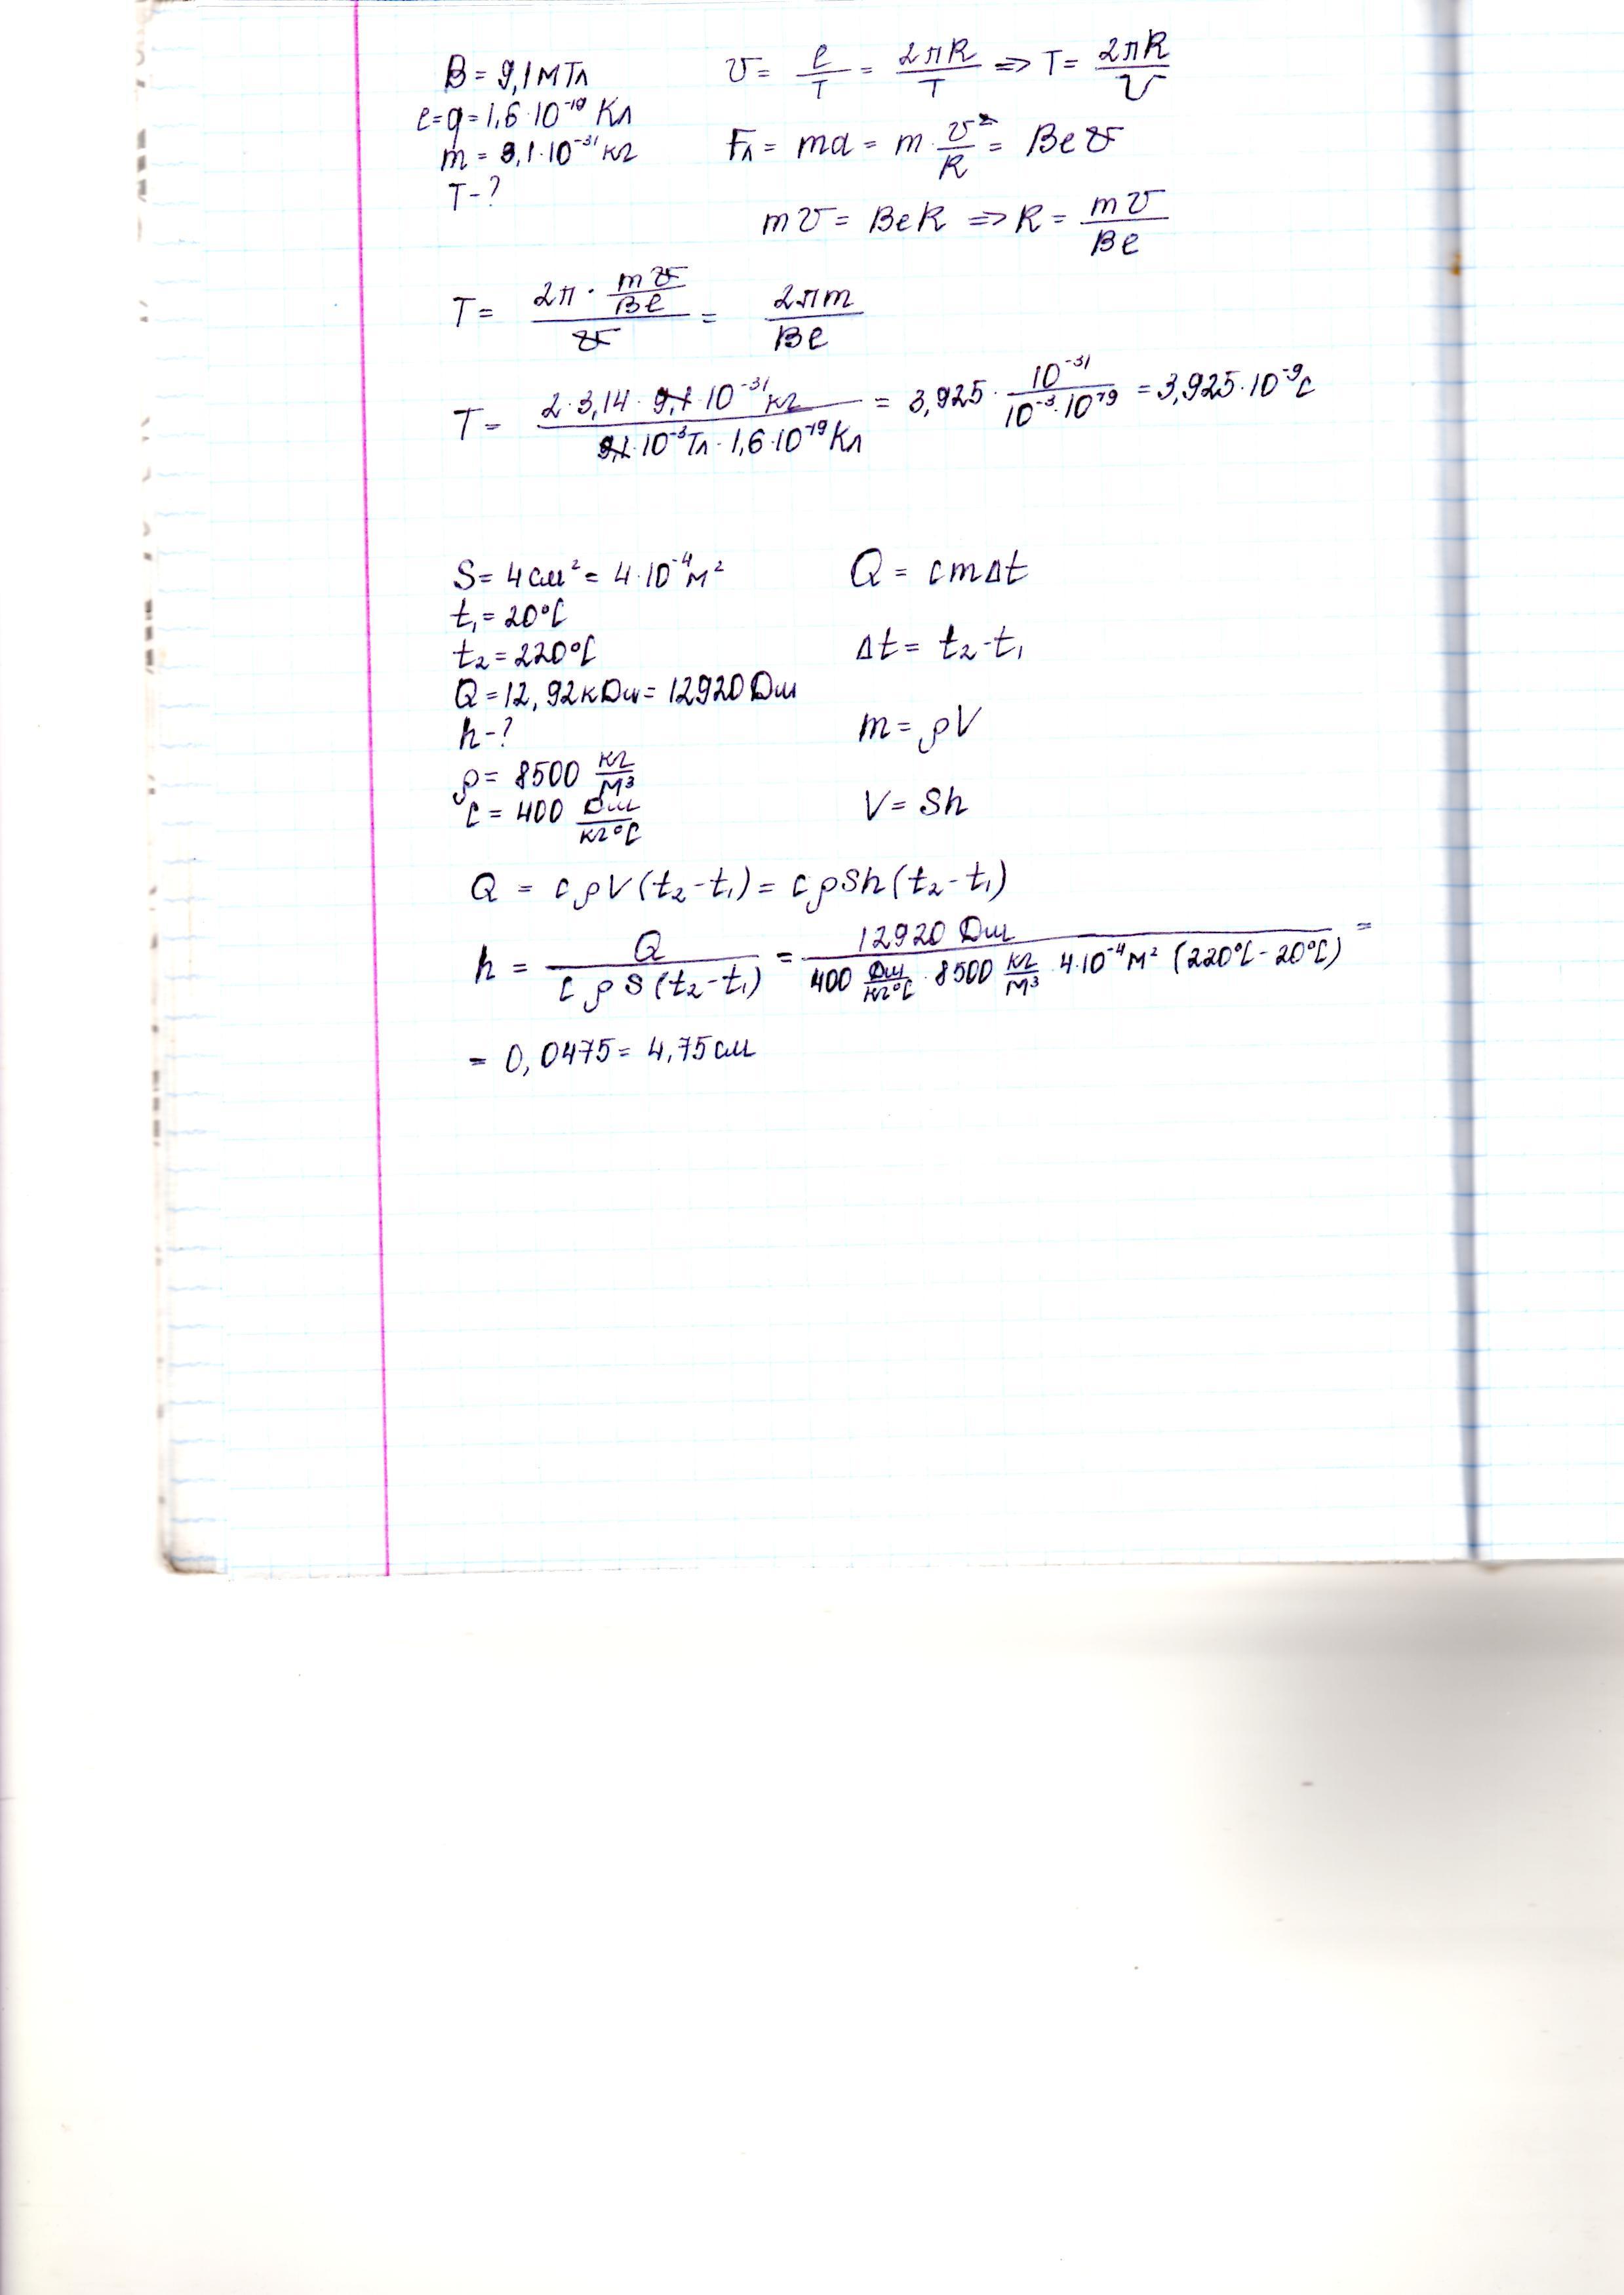 B = 9,1 мТл
e = q = 1,6·10⁻¹⁹ Кл
m = 9,1·10⁻³¹ кг
T - ?
υ = l/T = 2πR/T => T = 2πR/υ
Fл = ma = m·υ²/R = Beυ
mυ = BeR => R = mυ/Be
T = (2π · mυ/Be)/υ = 2πm/Be
T = (2·3,14·9,1·10⁻³¹ кг)/(9,1·10⁻³ Тл · 1,6·10⁻¹⁹ Кл) = 3,925 · 10⁻³¹/(10⁻³·10⁻¹⁹) = 3,925·10⁻⁹ с
S = 4 см² = 4·10⁻⁴ м²
t₁ = 20°C
t₂ = 220°C
Q = 12,92 кДж = 12920 Дж
h - ?
ρ = 8500 кг/м³
c = 400 Дж/кг°C
Q = cmΔt
Δt = t₂ - t₁
m = ρV
V = Sh
Q = cρV(t₂ - t₁) = cρSh(t₂ - t₁)
h = Q/(cρS(t₂ - t₁)) = 12920 Дж/(400 Дж/кг°C · 8500 кг/м³ · 4·10⁻⁴ м² (220°C - 20°C)) =
= 0,0475 = 4,75 см